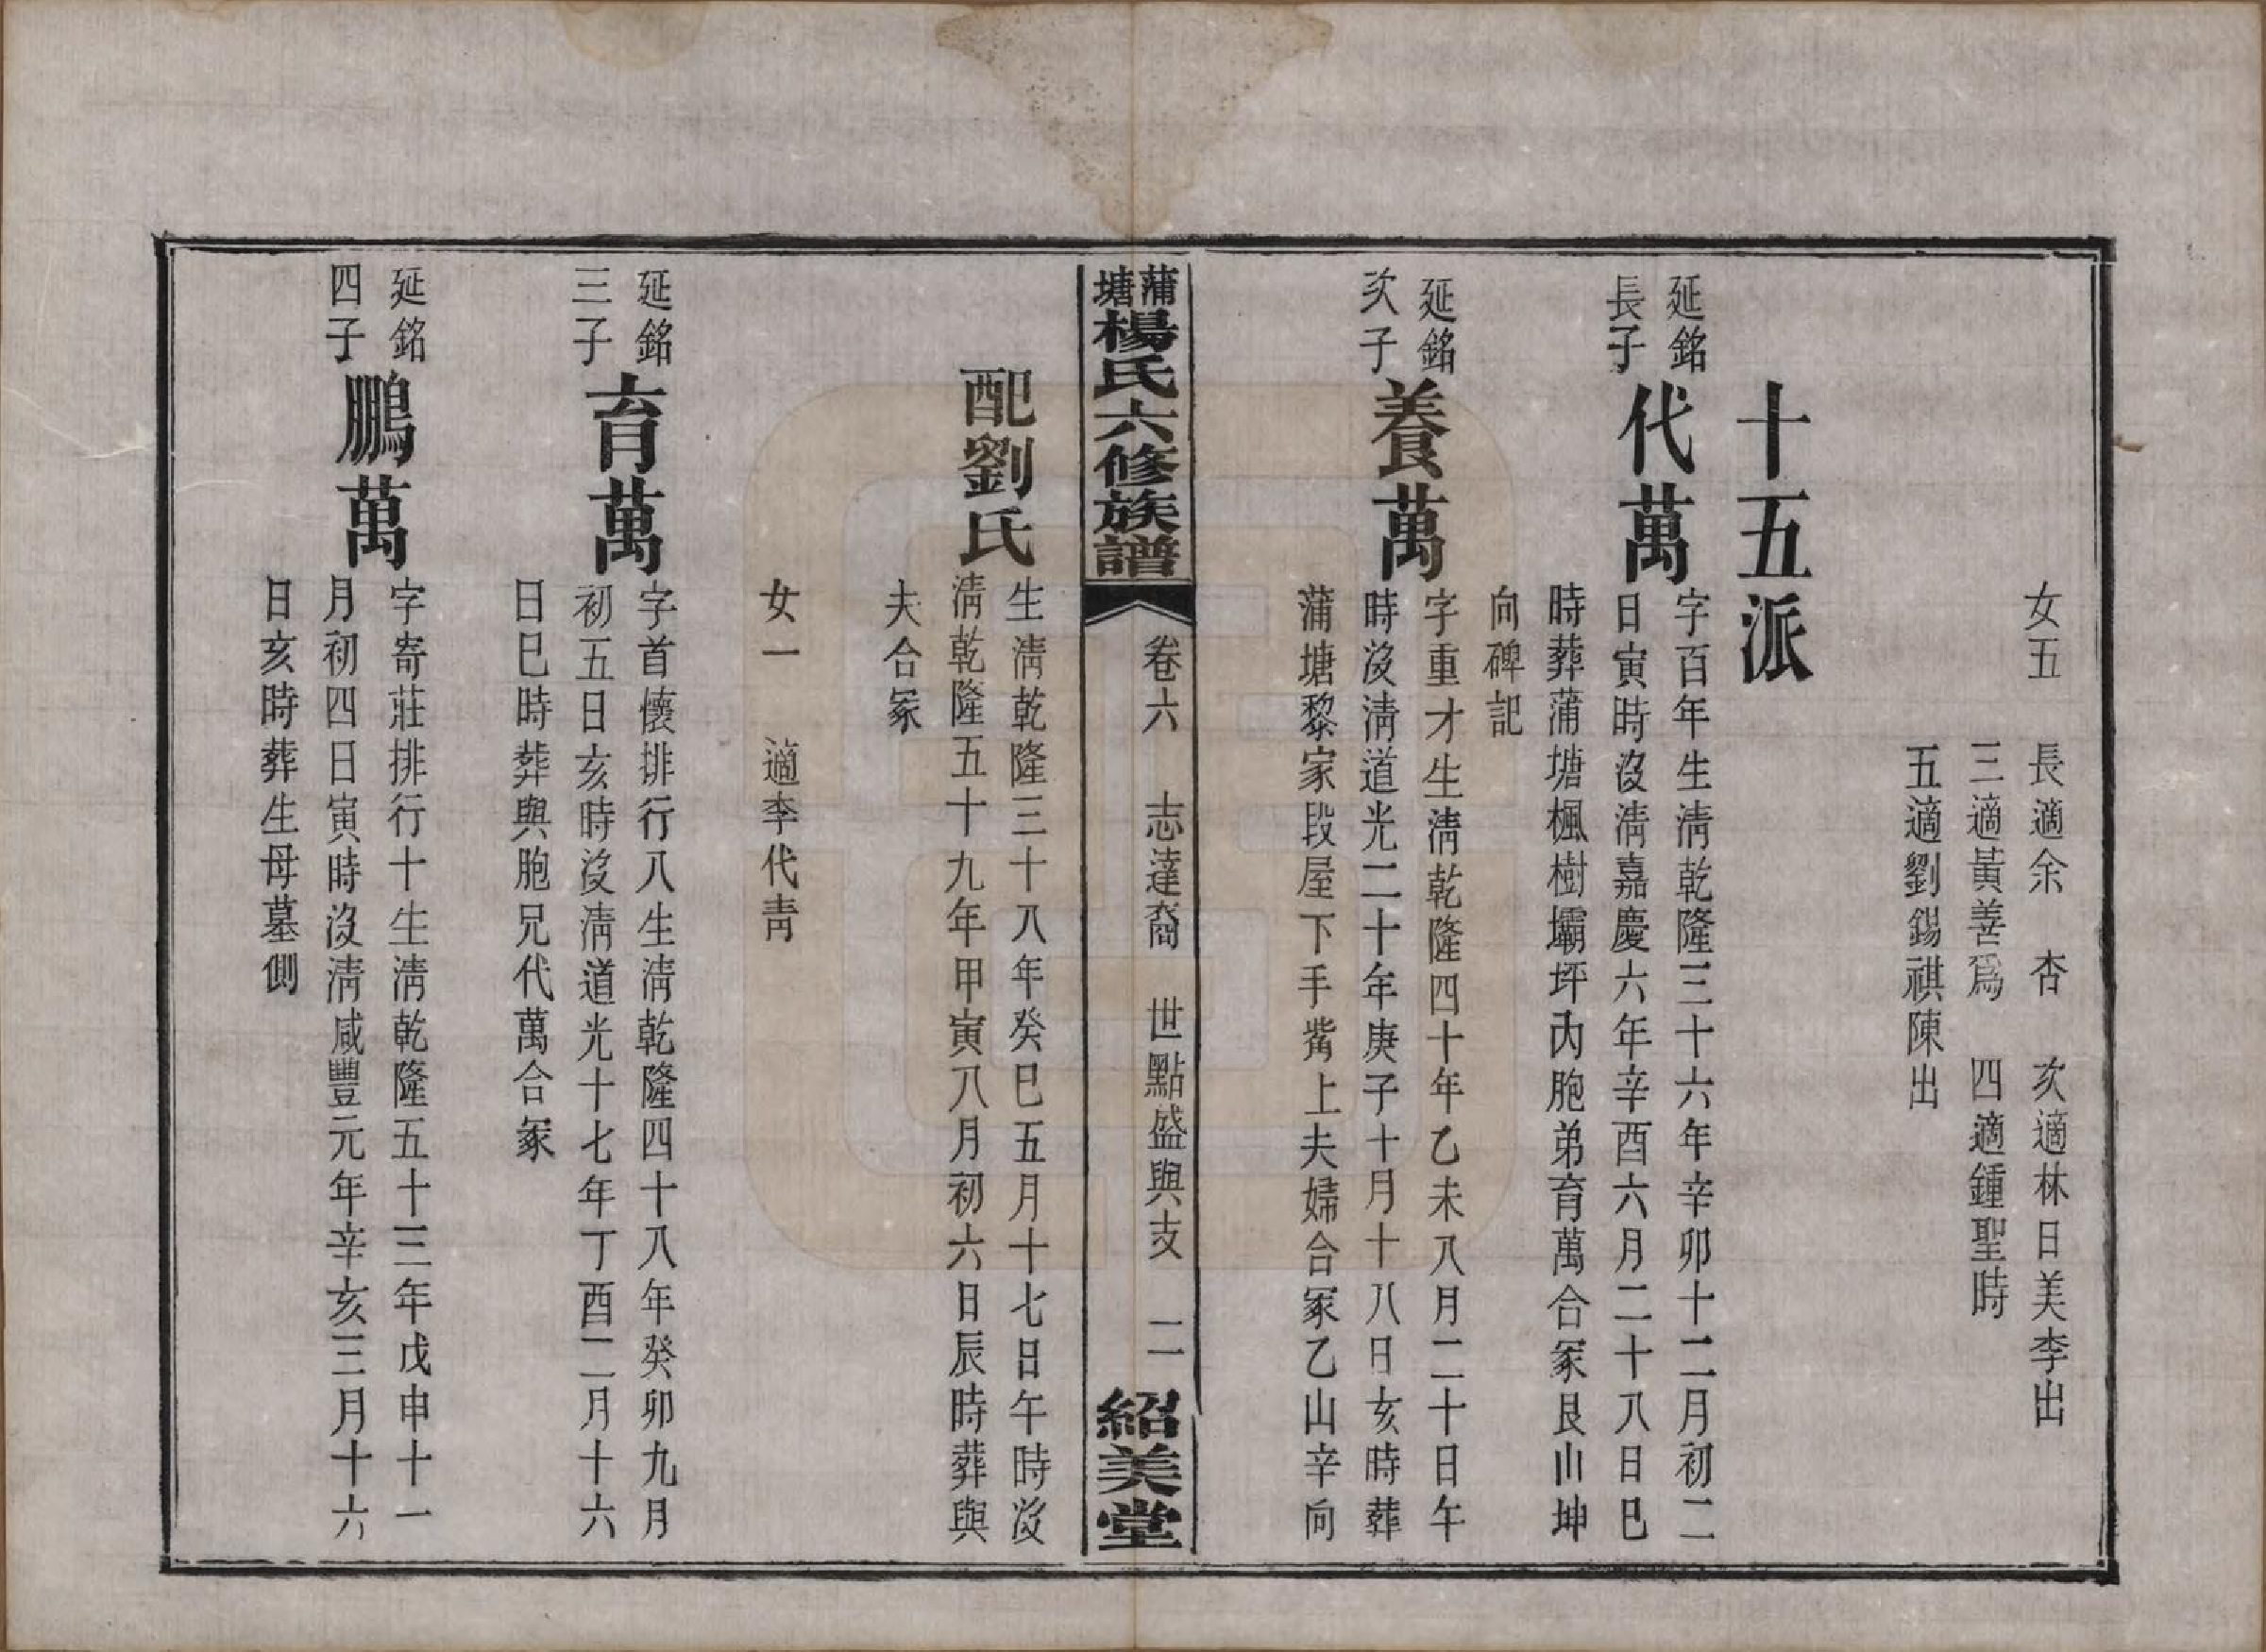 女五　長適余　杏　次適林日美李出
三適黃善爲　四適鍾聖時
五適劉錫祺陳出
十五派
延銘
長子
代萬
字百年生淸乾隆三十六年辛卯十二月初二
日寅時沒淸嘉慶六年辛酉六月二十八日巳
時葬蒲塘楓樹壩坪內胞弟育萬合冢艮山坤
向碑記
延銘
次子
養萬
字重才生淸乾隆四十年乙未八月二十日午
時沒淸道光二十年庚子十月十八日亥時葬
蒲塘黎家段屋下手嘴上夫婦合冢乙山辛向
蒲塘楊氏六修族譜
卷六　志達裔　世點盛與支　二
紹美堂
配劉氏
生淸乾隆三十八年癸巳五月十七日午時沒
淸乾隆五十九年甲寅八月初六日辰時葬與
夫合冢
女一　適李代青
延銘
三子
育萬
字首懷排行八生淸乾隆四十八年癸卯九月
初五日亥時沒淸道光十七年丁酉二月十六
日巳時葬與胞兄代萬合冢
延銘
四子
鵬萬
字寄莊排行十生淸乾隆五十三年戊申十一
月初四日寅時沒淸咸豐元年辛亥三月十六
日亥時葬生母墓側